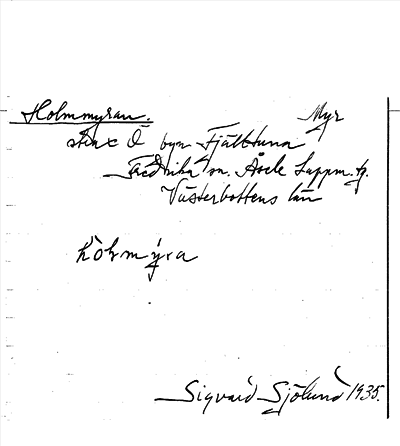 Holmmyran. Myr
strax Ö byn Fjälltuna
Fredrika sn. Åsele Lappm. tg.
Västerbottens län
hòlmýra
Sigvard Sjölund 1935.